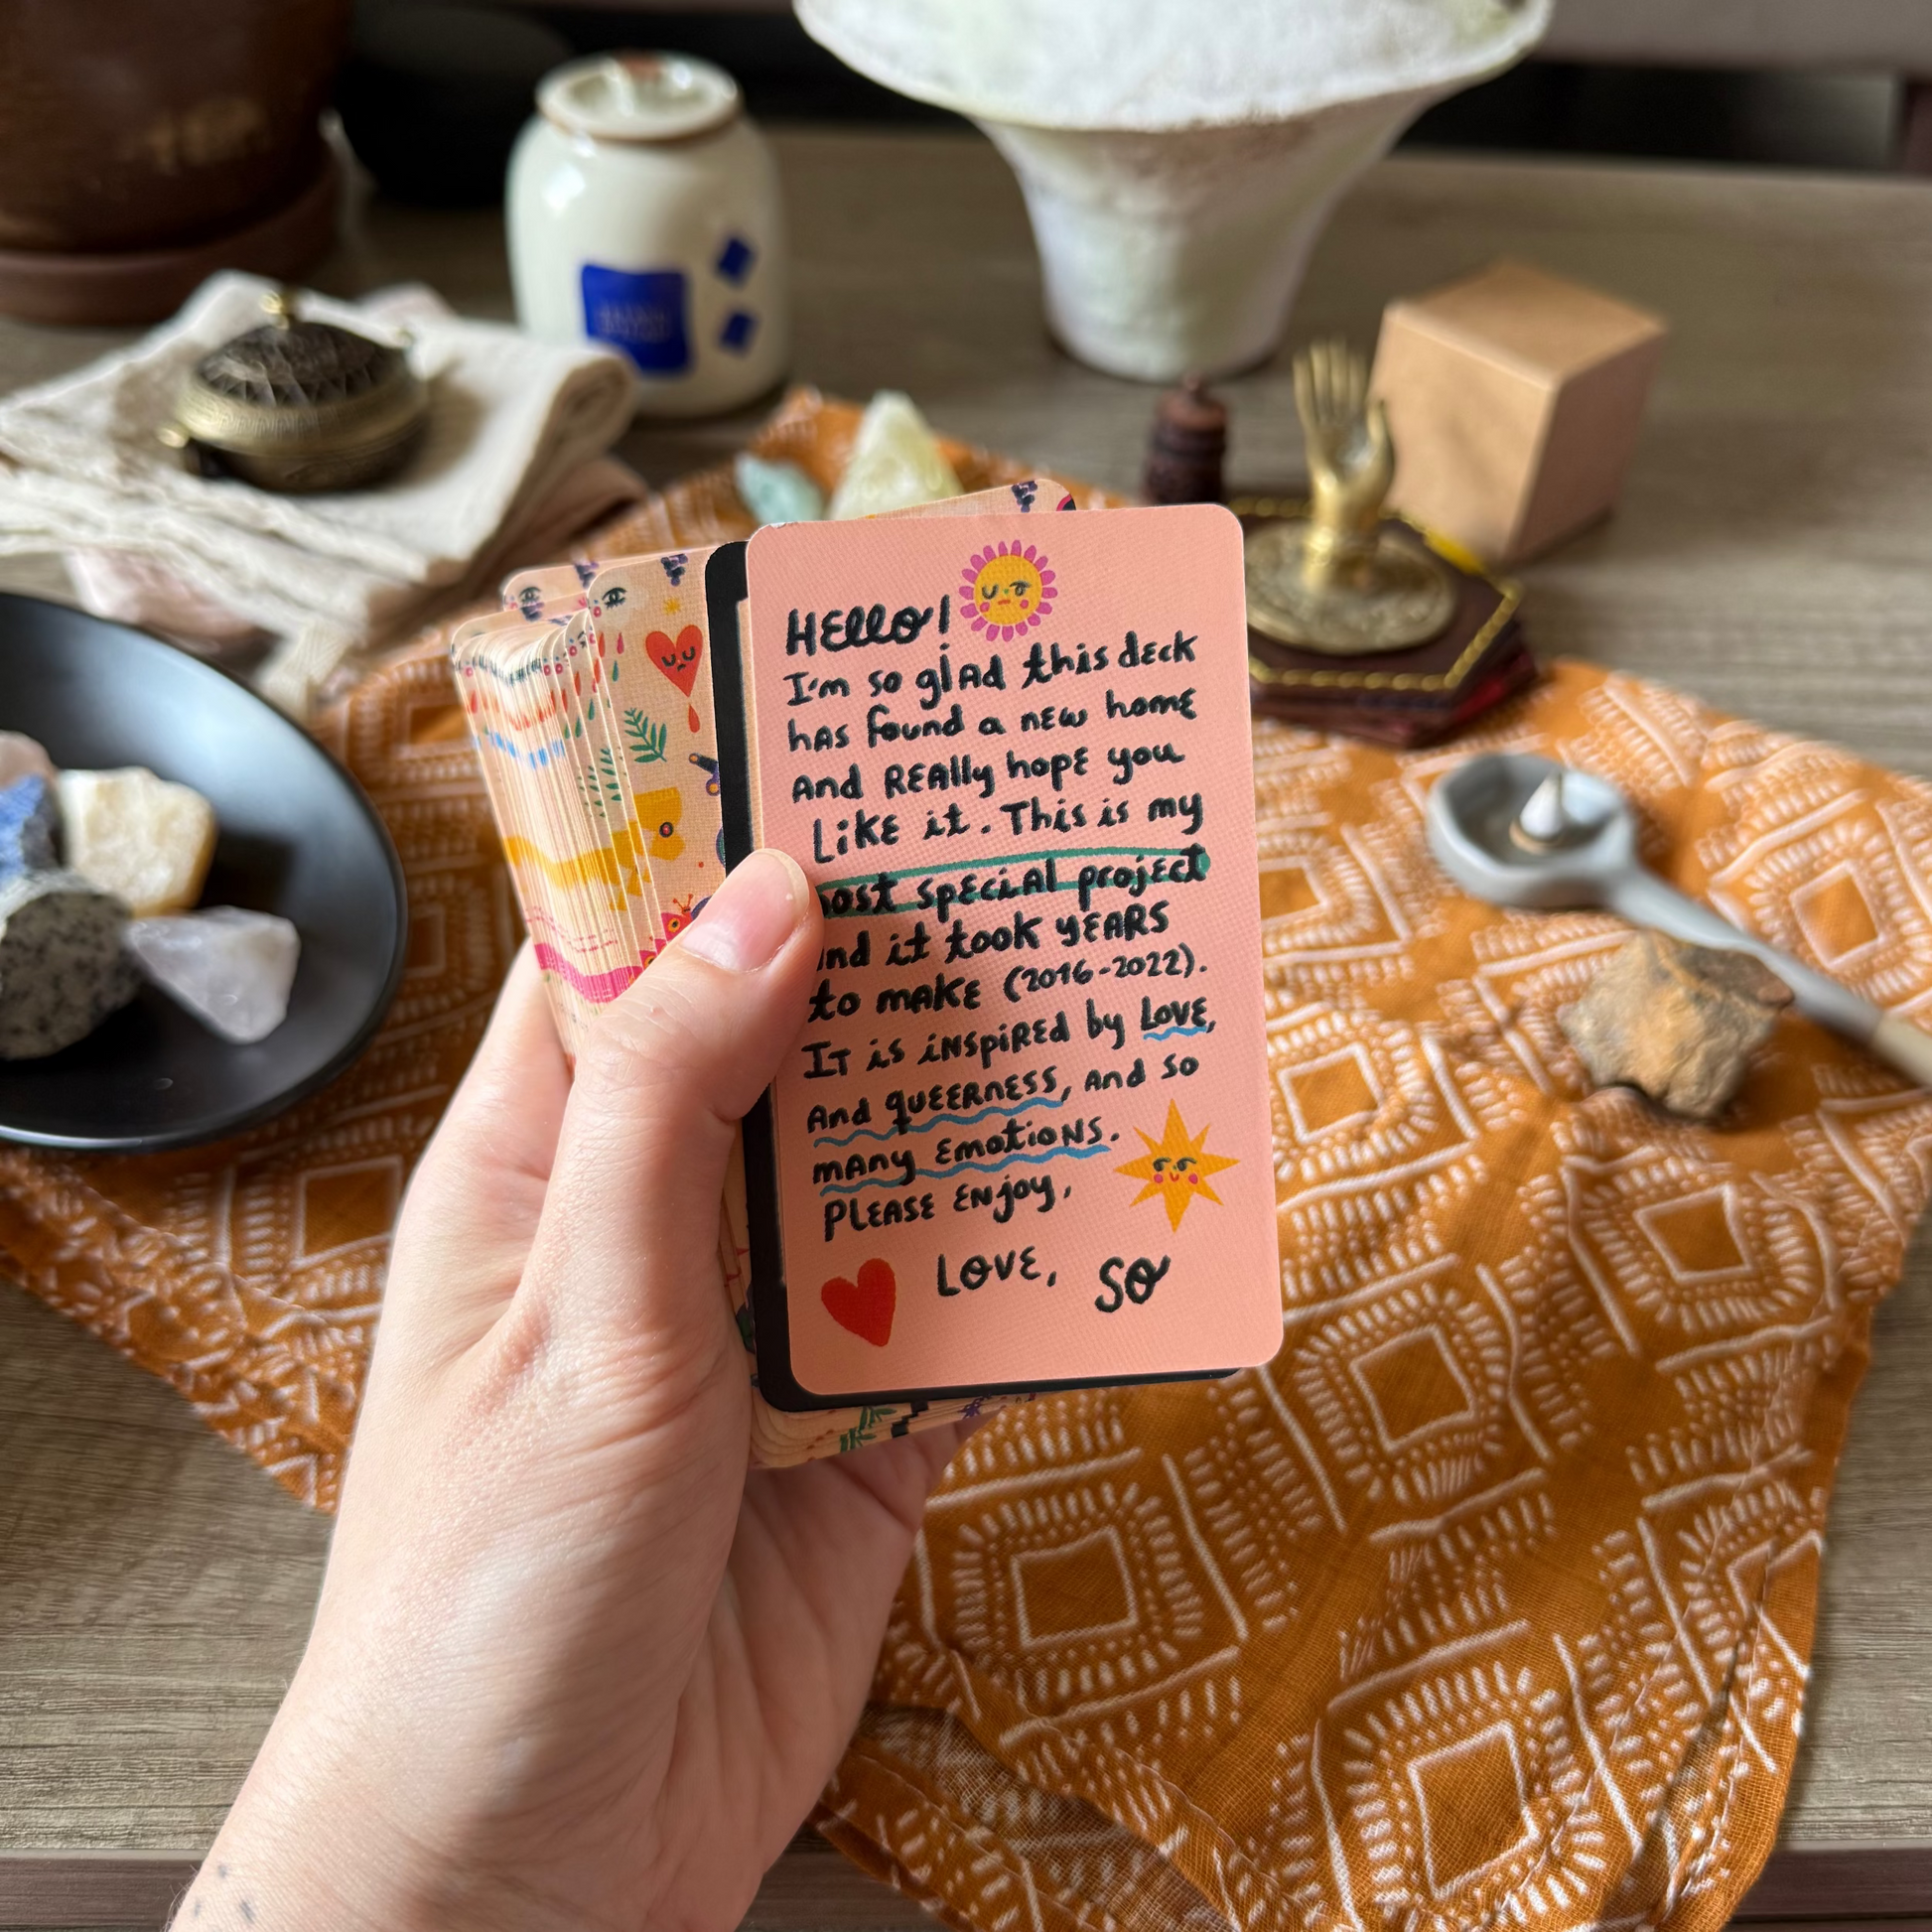 HELLO!
I'm so glad this deck
has found a new home
and REALLY hope you
Like it. This is my
ost special project
nd it took YEARS
to make (2016-2022).
It is inspired by LOVE,
and queerness, and so
many emotions.
PLEASE ENJOY,
LOVE, SO